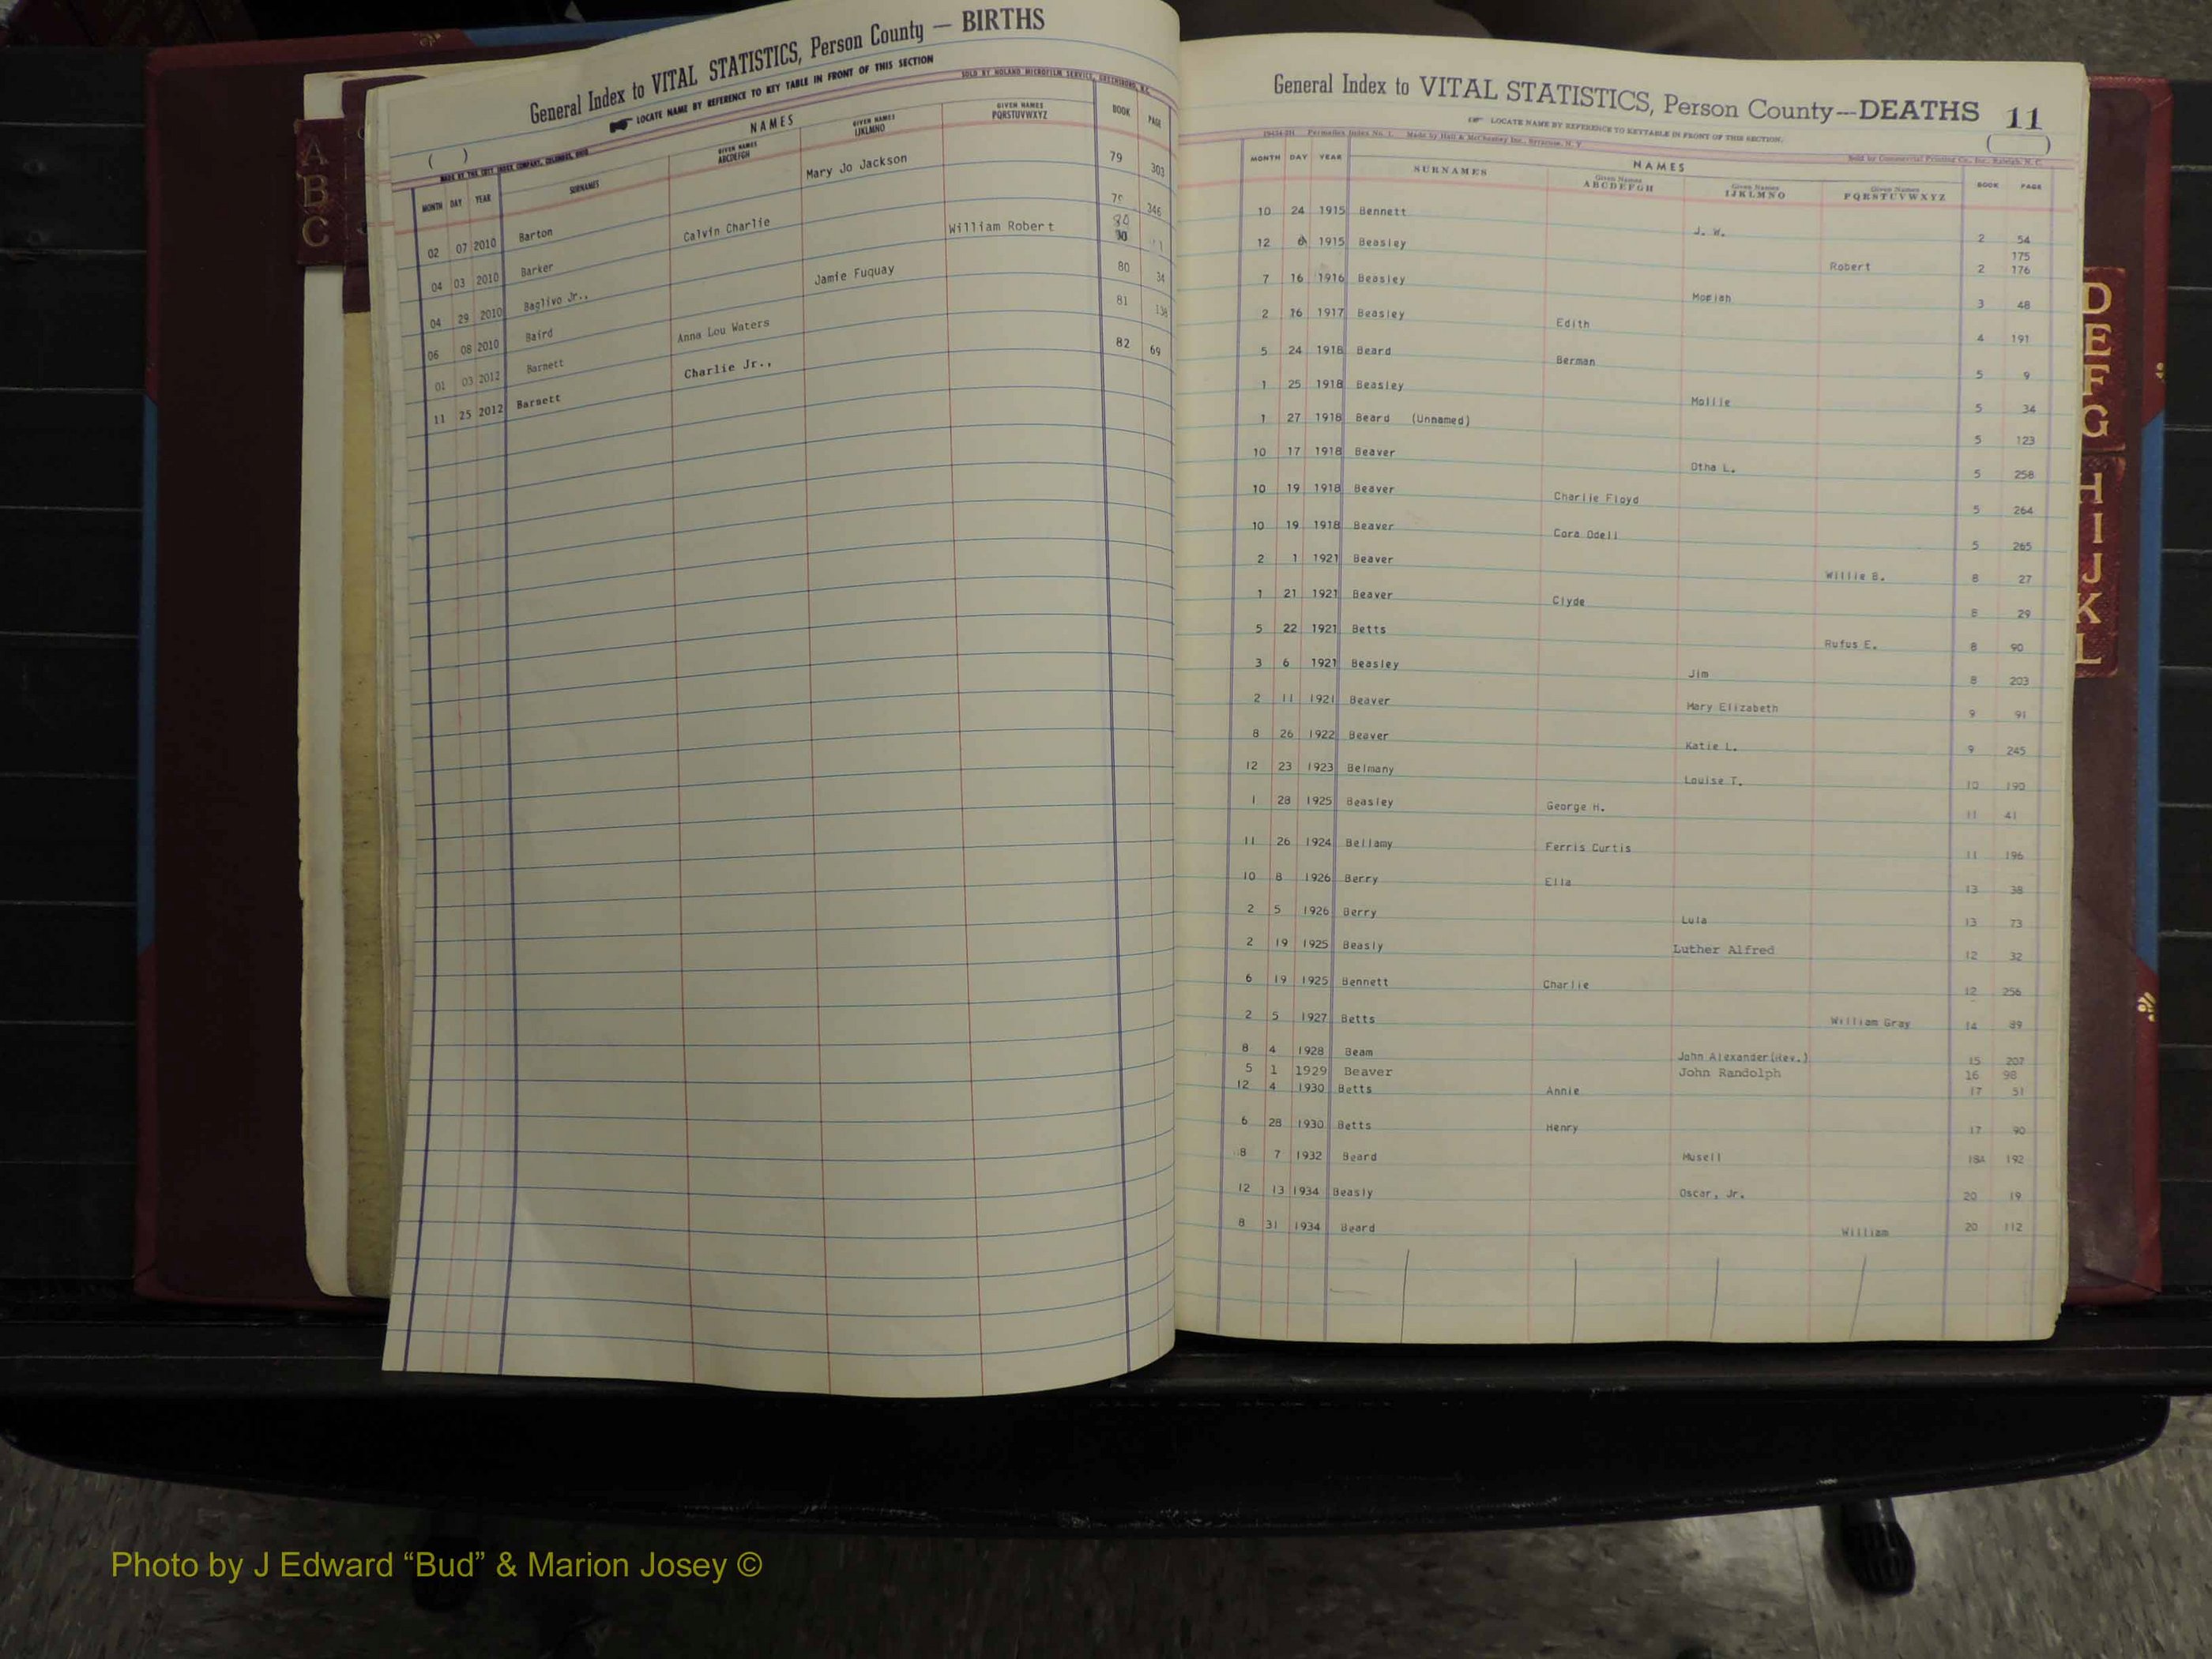 General Index to VITAL STATISTICS, Person County — BIRTHS
LOCATE NAME BY REFERENCE TO KEY TABLE IN FRONT OF THIS SECTION
SOLD BY NOLAND MICROFILM SERVICE, GREENSBORO, N.C.
( )
MADE BY THE COTT INDEX COMPANY, COLUMBUS, OHIO
NAMES
MONTH DAY YEAR SURNAMES GIVEN NAMES ABCDEFGH GIVEN NAMES IJKLMNO GIVEN NAMES PQRSTUVWXYZ BOOK PAGE
02 07 2010 Barton Mary Jo Jackson 79 303
04 03 2010 Barker Calvin Charlie 346
04 29 2010 Baglivo Jr., William Robert 80
06 08 2010 Baird Jamie Fuquay 80 34
01 03 2012 Barnett Anna Lou Waters 81 138
11 25 2012 Barnett Charlie Jr., 82 69
A
B
C
General Index to VITAL STATISTICS, Person County—DEATHS 11
LOCATE NAME BY REFERENCE TO KEYTABLE IN FRONT OF THIS SECTION.
( )
Made by Hall & McChesney Inc., Syracuse, N. Y.
Sold by Commercial Printing Co., Inc., Raleigh, N. C.
NAMES
MONTH DAY YEAR SURNAMES Given Names ABCDEFGH Given Names IJKLMNO Given Names PQRSTUVWXYZ BOOK PAGE
10 24 1915 Bennett J. W. 2 54
175
12 1915 Beasley Robert 2 176
7 16 1916 Beasley Moriah 3 48
2 16 1917 Beasley Edith 4 191
5 24 1918 Beard Berman 5 9
1 25 1918 Beasley Mollie 5 34
1 27 1918 Beard (Unnamed) 5 123
10 17 1918 Beaver Otha L. 5 258
10 19 1918 Beaver Charlie Floyd 5 264
10 19 1918 Beaver Cora Odell 5 265
2 1 1921 Beaver Willie B. 8 27
1 21 1921 Beaver Clyde 8 29
5 22 1921 Betts Rufus E. 8 90
3 6 1921 Beasley Jim 8 203
2 11 1921 Beaver Mary Elizabeth 9 91
8 26 1922 Beaver Katie L. 9 245
12 23 1923 Belmany Louise T. 10 190
1 28 1925 Beasley George H. 11 41
11 26 1924 Bellamy Ferris Curtis 11 196
10 8 1926 Berry Ella 13 38
2 5 1926 Berry Lula 13 73
2 19 1925 Beasly Luther Alfred 12 32
6 19 1925 Bennett Charlie 12 256
2 5 1927 Betts William Gray 14 89
8 4 1928 Beam John Alexander(Rev.) 15 207
5 1 1929 Beaver John Randolph 16 98
12 4 1930 Betts Annie 17 51
6 28 1930 Betts Henry 17 90
8 7 1932 Beard Musell 18A 192
12 13 1934 Beasly Oscar, Jr. 20 19
8 31 1934 Beard William 20 112
D
E
F
G
H
I
J
K
L
Photo by J Edward “Bud” & Marion Josey ©